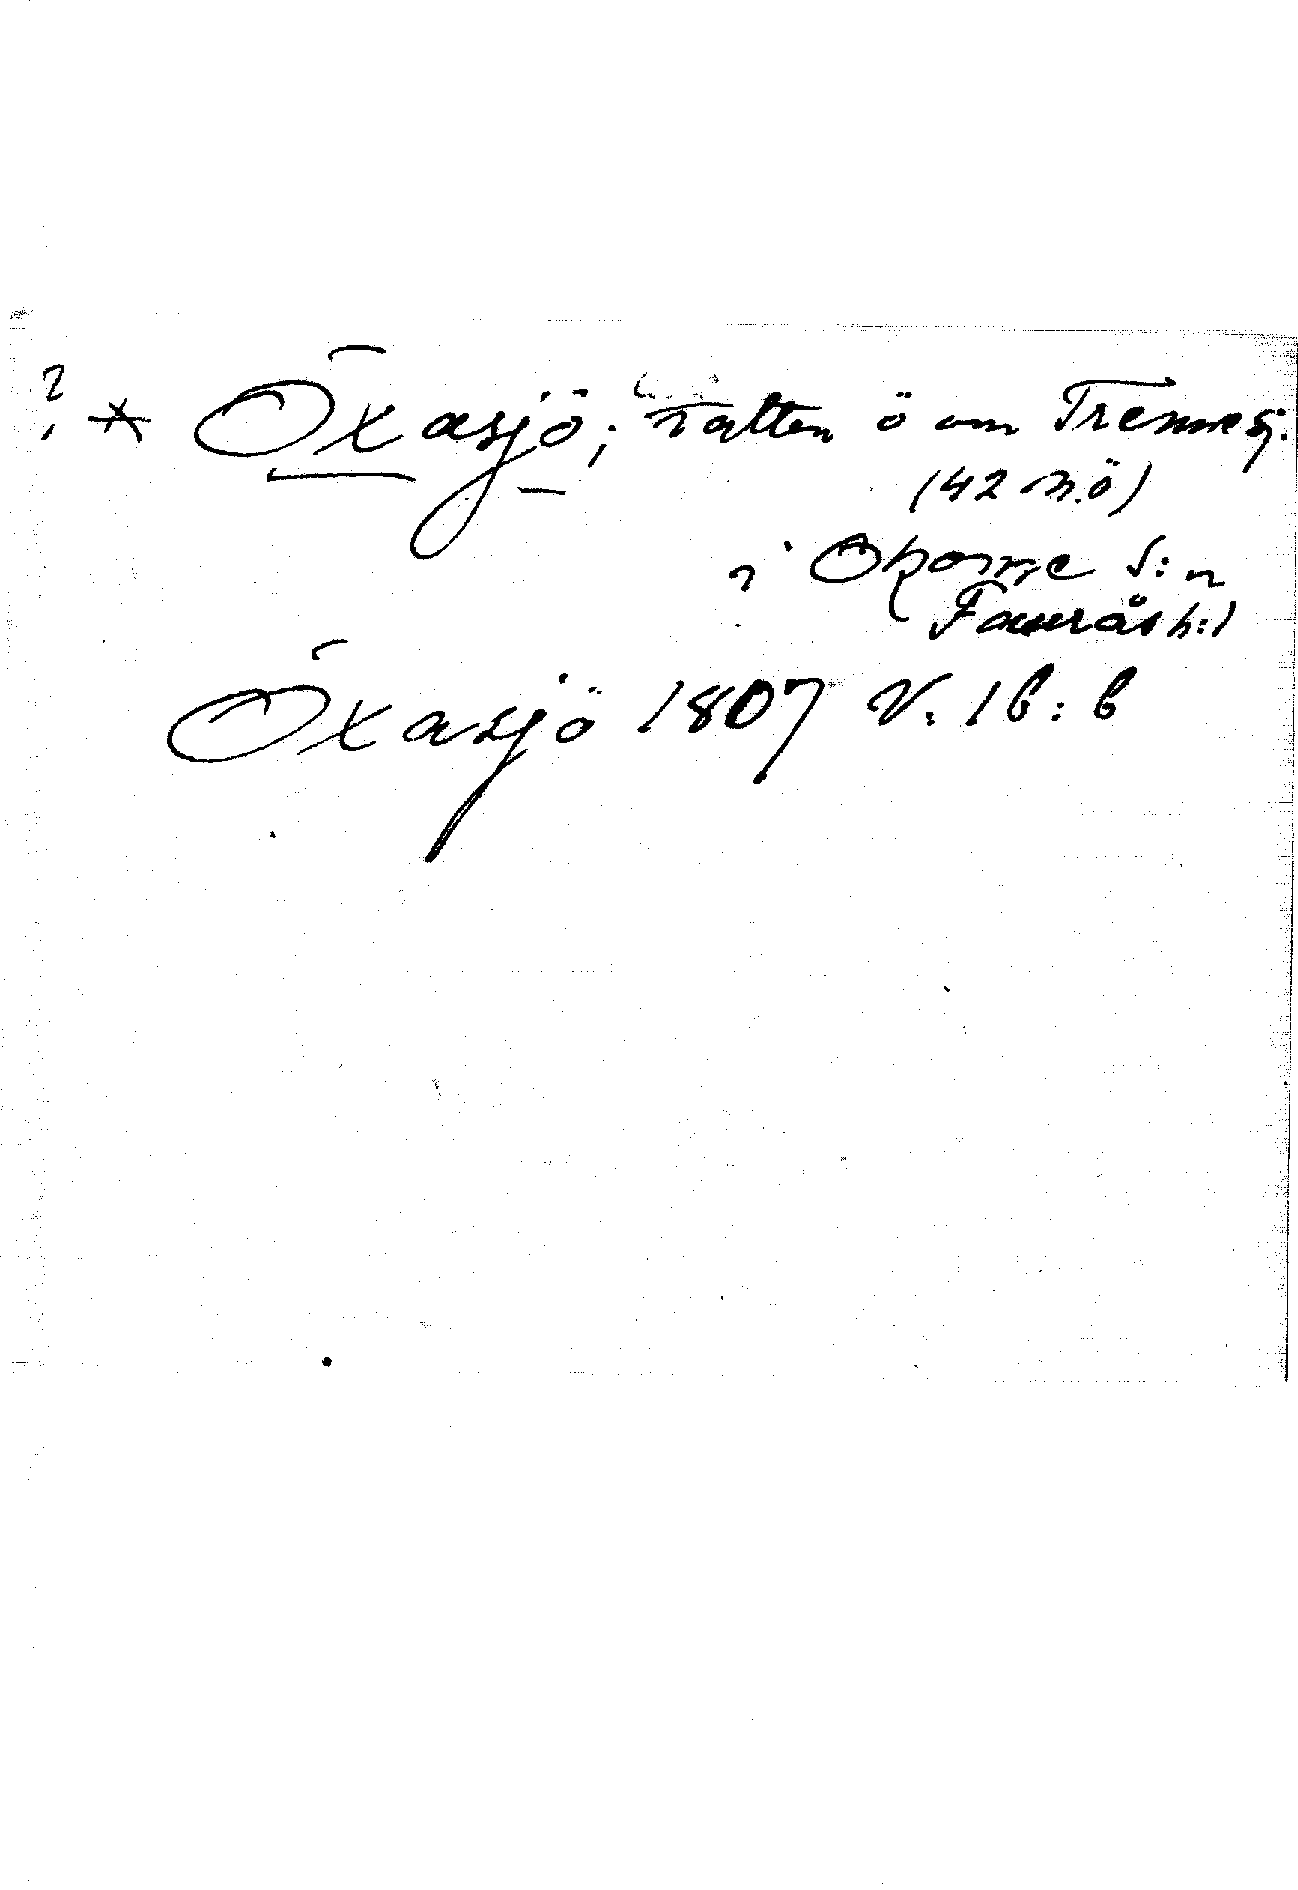 ? * Öxasjö; vatten ö om Tremmesj.
(42 n.ö)
i Okome s:n
Faurås h:d
Öxasjö 1807 V. 16:6